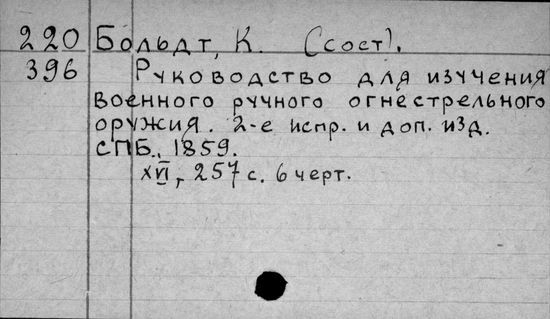 220 Больдт, К. (сост).
396 Руководство для изучения
военного ручного огнестрельного
оружия. 2-е испр. и доп. изд.
СПБ., 1859.
XVI, 257 с. 6 черт.